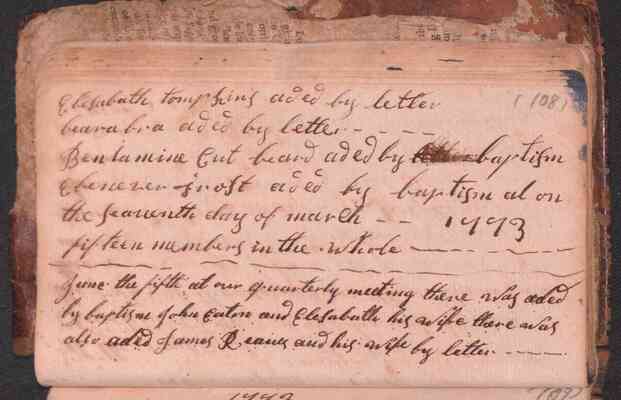 Elesabath tompkins aded by letler (108)
bearabra aded by letler - - - -
Bentamine Cut beard aded by baptism
Ebenezer frost aded by baptism al on
the seaventh day of march - - 1793
fifteen members in the whole
June the fifth at our quarterly meeting there was aded
by baptism John Eaton and Elesabath his wife there was
also aded James and his wife by letter - - - -
1793 (109)